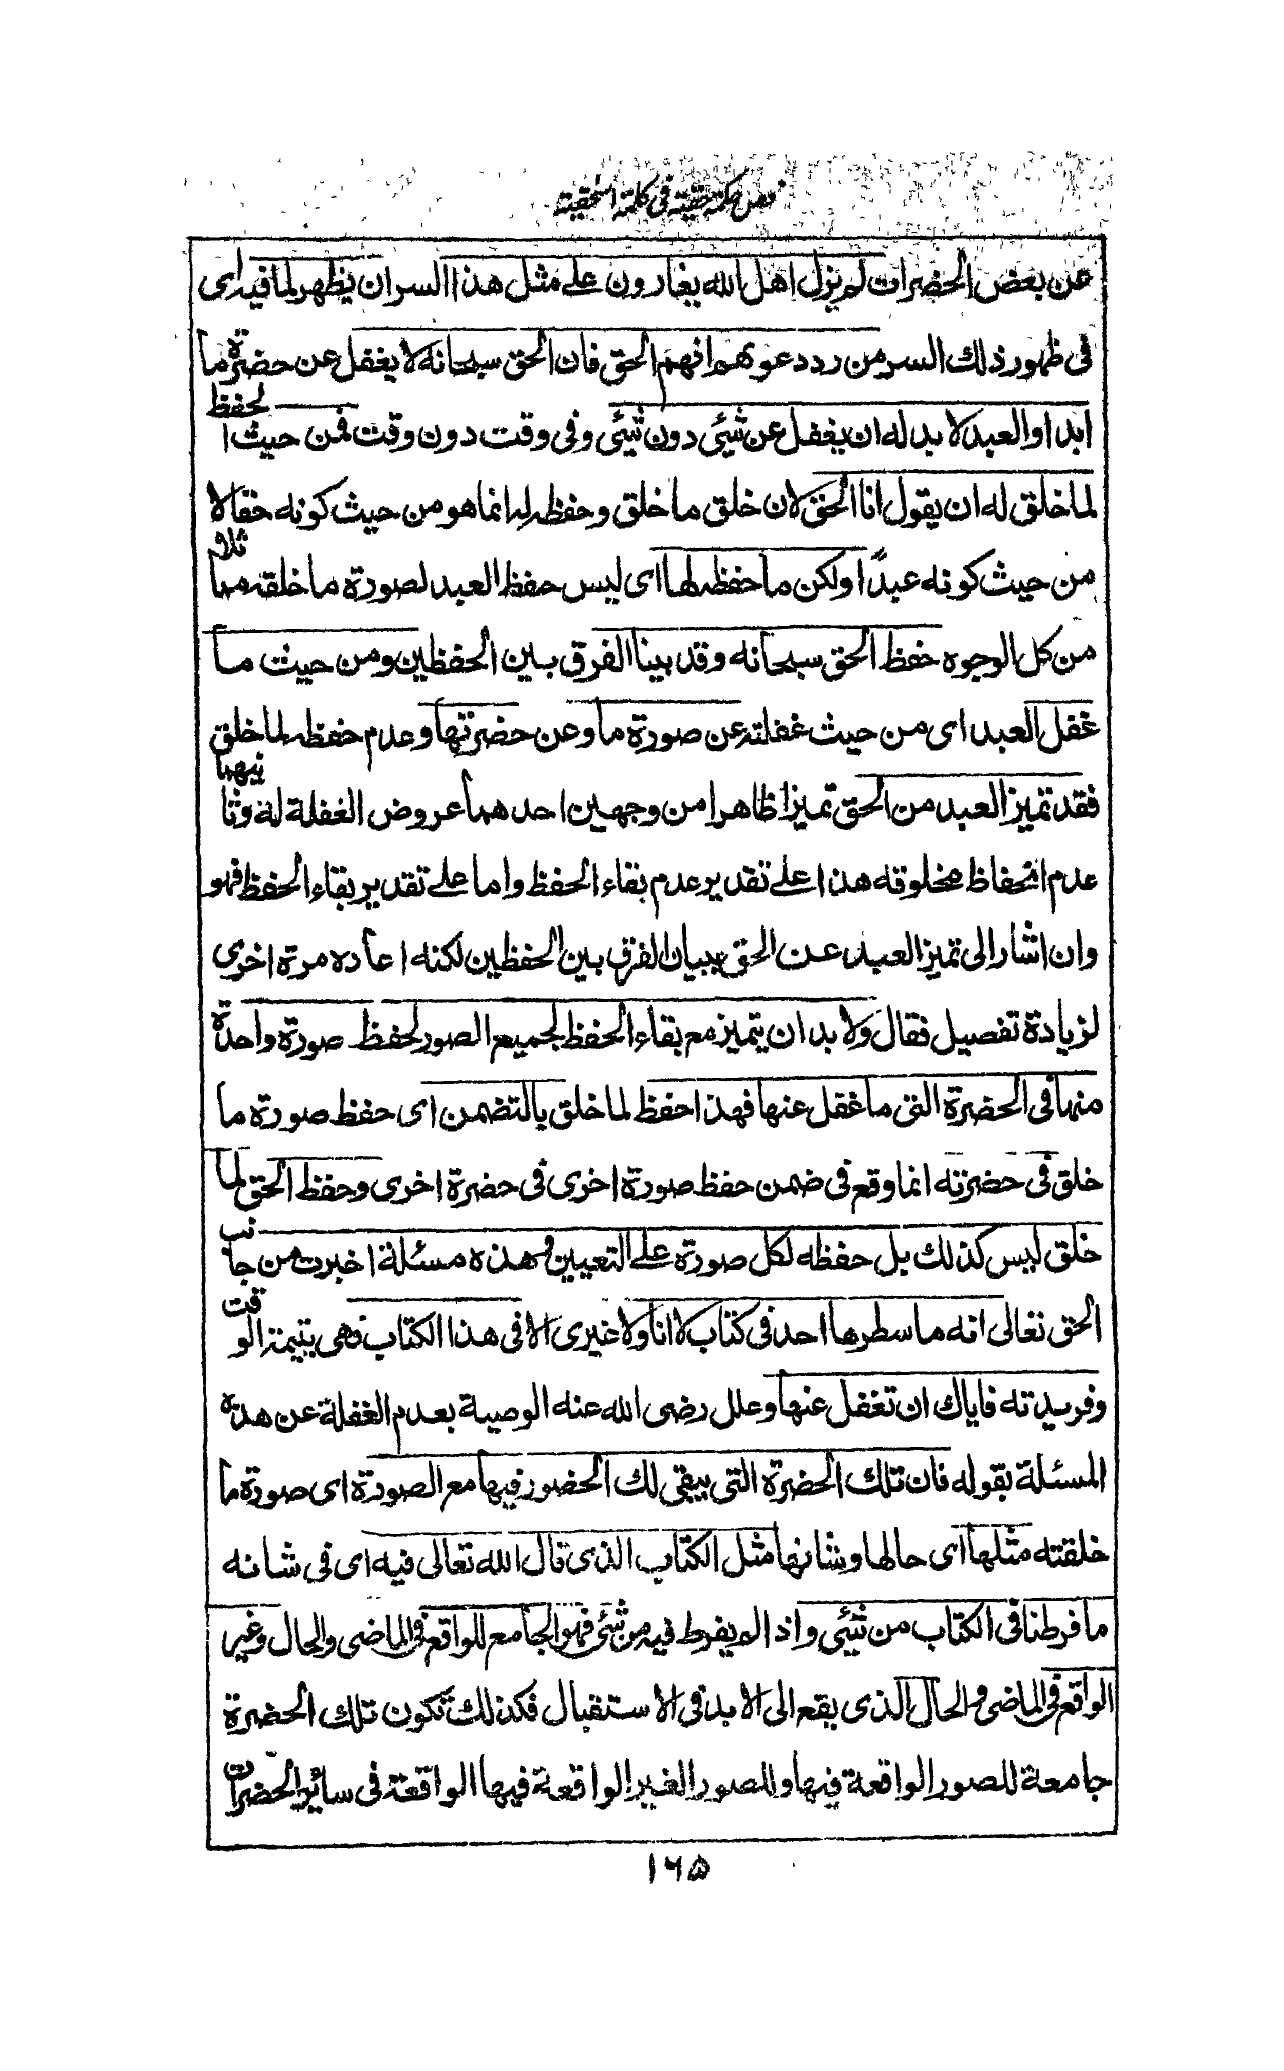 فص حكمة حقية في كلمة اسحقية
عن بعض الحضرات لم يزل اهل الله يغارون على مثل هذا السر ان يظهر لما فيه اى
فى ظهور ذلك السر من رد دعوىهم انهم الحق فان الحق سبحانه لا يغفل عن حضرة ما
ابدا والعبد لا بد له ان يغفل عن شئى دون شئى وفى وقت دون وقت فمن حيث الحفظ
لما خلق له ان يقول انا الحق لان خلق ما خلق وحفظه له انما هو من حيث كونه حقا لا
من حيث كونه عبدًا ولكن ما حفظه لها اى ليس حفظ العبد لصورة ما خلقه مثلا
من كل الوجوه حفظ الحق سبحانه وقد بينا الفرق بين الحفظين ومن حيث ما
غفل العبد اى من حيث غفلته عن صورة ما وعن حضرتها وعدم حفظه لما خلق
فقد تميز العبد من الحق تميزا ظاهرا من وجهين احدهما عروض الغفلة له وثانيهما
عدم انحفاظ مخلوقه هذا على تقدير عدم بقاء الحفظ واما على تقدير بقاء الحفظ فهو
وان اشار الى تميز العبد عن الحق ببيان الفرق بين الحفظين لكنه اعاده مرة اخرى
لزيادة تفصيل فقال ولا بد ان يتميز مع بقاء الحفظ لجميع الصور لحفظ صورة واحدة
منها فى الحضرة التى ما غفل عنها فهذا حفظ لما خلق بالتضمن اى حفظ صورة ما
خلق فى حضرته انما وقع فى ضمن حفظ صورة اخرى فى حضرة اخرى وحفظ الحق لما
خلق ليس كذلك بل حفظه لكل صورة على التعيين وهذه مسئلة اخبرت من جانب
الحق تعالى انه ما سطرها احد فى كتاب لا انا ولا غيرى الا فى هذا الكتاب فهى يتيمة الوقت
وفريدته فاياك ان تغفل عنها وعلل رضى الله عنه الوصية بعدم الغفلة عن هذه
المسئلة بقوله فان تلك الحضرة التى يبقى لك الحضور فيها مع الصورة اى صورة ما
خلقته مثلها اى حالها وشانها مثل الكتاب الذى قال الله تعالى فيه اى فى شانه
ما فرطنا فى الكتاب من شئى واذا لم يفرط فيه من شئى فهو الجامع للواقع فى الماضى والحال وغير
الواقع فى الماضى والحال الذى يقع الى الابد فى الاستقبال فكذلك تكون تلك الحضرة
جامعة للصور الواقعة فيها وللصور الغير الواقعة فيها الواقعة فى سائر الحضرات
١٦٥